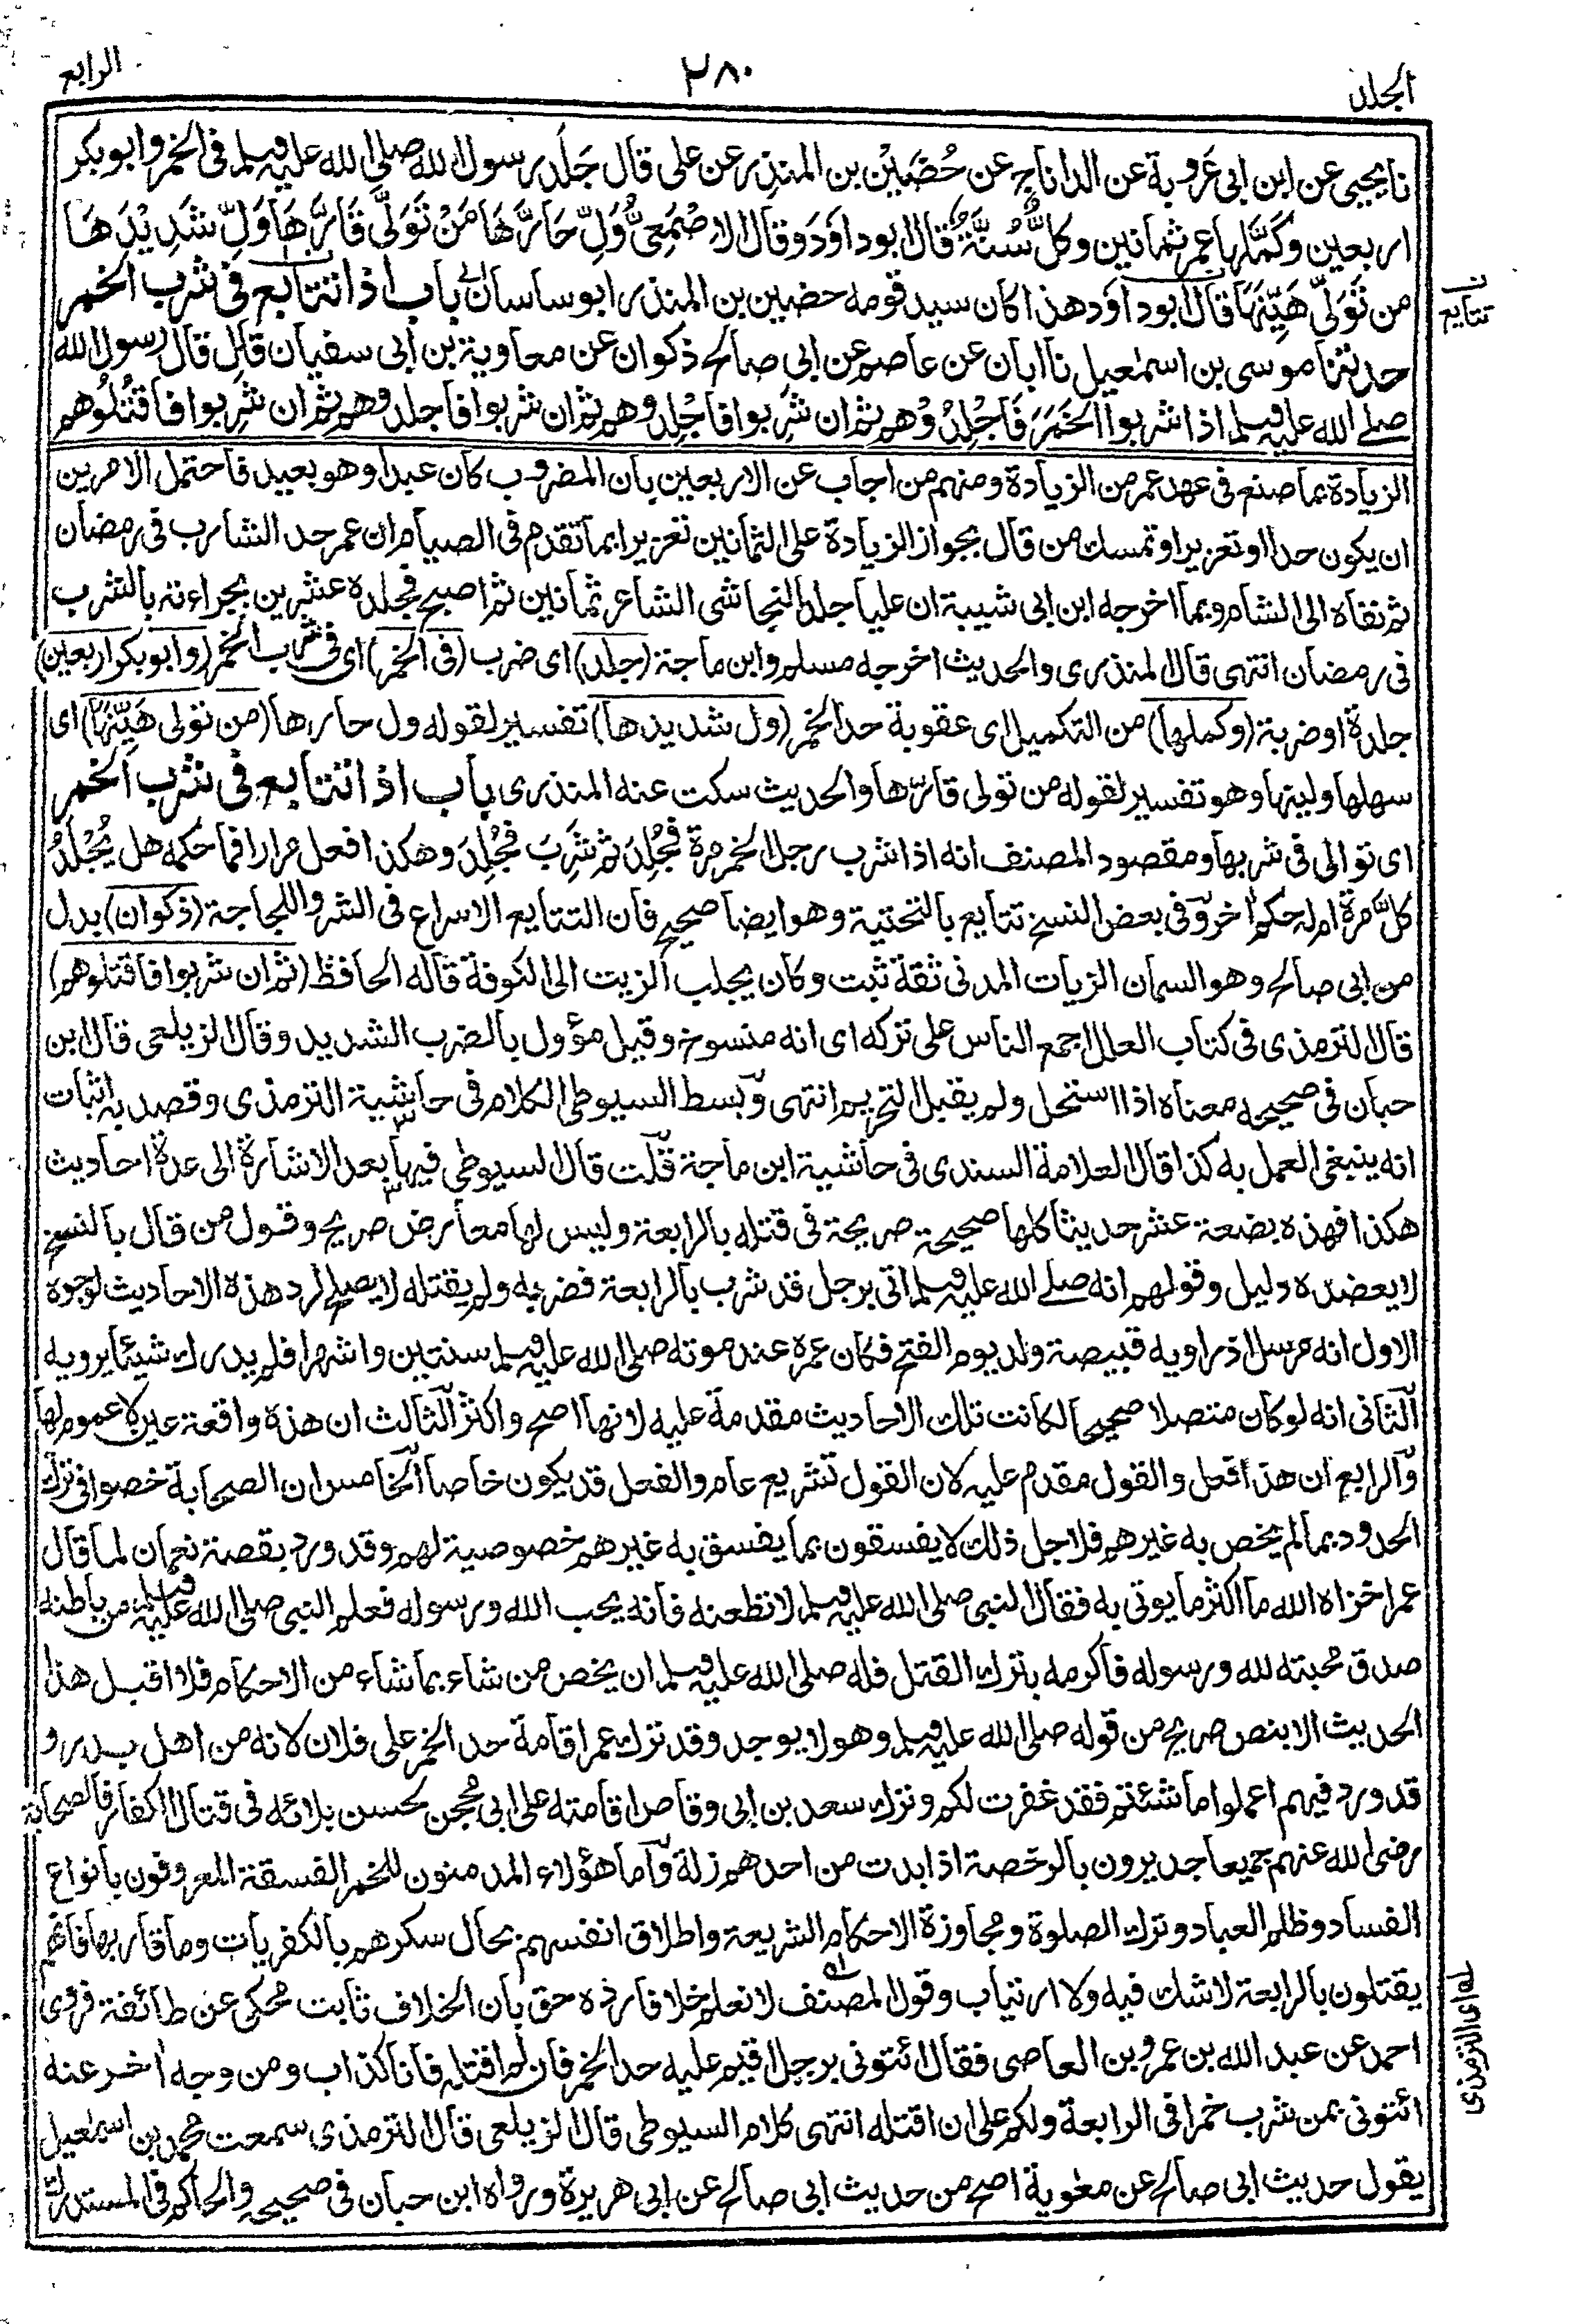 الجلد
٢٨٠
الرابع
نا يحيى عن ابن ابى عَروبة عن الداناج عن حُضَيْن بن المنذر عن على قال جَلَد رسول الله صلى الله عليه وسلم فى الخمر وابوبكر
اربعين وكَمَّلها عمر ثمانين وكلٌّ سُنَّةٌ قال ابوداؤد وقال الاصْمَعِىُّ وَلِّ حَارَّهَا مَنْ تَوَلَّى قَارَّهَا وَلِّ شَدِيْدَهَا
من تَوَلَّى هَيِّنَهَا قال ابوداؤد هذا كان سيد قومه حضين بن المنذر ابوساسان باب اذا تتابع فى شرب الخمر
تتايع
حدثنا موسى بن اسمٰعيل نا ابان عن عاصم عن ابى صالح ذكوان عن معاوية بن ابى سفيان قال قال رسول الله
صلى الله عليه وسلم اذا شربوا الخَمَرَ فَاجْلِدُوْهم ثم ان شَرِبوا فاجْلِدوهم ثم ان شربوا فاجلدوهم ثم ان شَرِبوا فاقْتُلُوهم
الزيادة بما صنع فى عهد عمر من الزيادة ومنهم من اجاب عن الاربعين بان المضروب كان عبدا وهو بعيد فاحتمل الامرين
ان يكون حدا او تعزيرا وتمسك من قال بجواز الزيادة على الثمانين تعزيرا بما تقدم فى الصيام ان عمر حد الشارب فى رمضان
ثم نفاه الى الشام وبما اخرجه ابن ابى شيبة ان عليا جلد النجاشى الشاعر ثمانين ثم اصبح فجلده عشرين بجراءته بالشرب
فى رمضان انتهى قال المنذرى والحديث اخرجه مسلم وابن ماجة (جلد) اى ضرب (فى الخمر) اى فى شرب الخمر (وابوبكر اربعين)
جلدة او ضربة (وكملها) من التكميل اى عقوبة حد الخمر (ول شديدها) تفسير لقوله ول حارها (من تولى هَيِّنَهَا) اى
سهلها ولينها وهو تفسير لقوله من تولى قارّها والحديث سكت عنه المنذرى باب اذا تتابع فى شرب الخمر
اى توالى فى شربها ومقصود المصنف انه اذا شرب رجل الخمر مرة فجُلِدَ ثم شَرِبَ فجُلِدَ وهكذا فعل مرارا فما حكمه هل يُجْلَدُ
كلَّ مرة ام له حكم اٰخر وفى بعض النسخ تتايع بالتحتية وهو ايضا صحيح فان التتايع الاسراع فى الشر واللجاجة (ذكوان) بدل
من ابى صالح وهو السمان الزيات المدنى ثقة ثبت وكان يجلب الزيت الى الكوفة قاله الحافظ (ثم ان شربوا فاقتلوهم)
قال الترمذى فى كتاب العلل اجمع الناس على تركه اى انه منسوخ وقيل مؤول بالضرب الشديد وقال الزيلعى قال ابن
حبان فى صحيحه معناه اذا استحل ولم يقبل التحريم انتهى وبسط السيوطى الكلام فى حاشية الترمذى وقصد به اثبات
انه ينبغى العمل به كذا قال العلامة السندى فى حاشية ابن ماجة قلت قال السيوطى فيها بعد الاشارة الى عدة احاديث
هكذا فهذه بضعة عشر حديثا كلها صحيحة صريحة فى قتله بالرابعة وليس لها معارض صريح وقول من قال بالنسخ
لا يعضده دليل وقولهم انه صلى الله عليه وسلم اتى برجل قد شرب بالرابعة فضربه ولم يقتله لا يصلح لرد هذه الاحاديث لوجوه
الاول انه مرسل اذ راويه قبيصة ولد يوم الفتح فكان عمره عند موته صلى الله عليه وسلم سنتين واشهرا فلم يدرك شيئا يرويه
الثانى انه لو كان متصلا صحيحا لكانت تلك الاحاديث مقدمة عليه لانها اصح واكثر الثالث ان هذه واقعة عين لا عموم لها
والرابع ان هذا فعل والقول مقدم عليه لان القول تشريع عام والفعل قد يكون خاصا الخامس ان الصحابة خصوا فى ترك
الحدود بما لم يخص به غيرهم فلاجل ذلك لا يفسقون بما يفسق به غيرهم خصوصية لهم وقد ورد بقصة نعمان لما قال
عمر اخزاه الله ما اكثر ما يوتى به فقال النبى صلى الله عليه وسلم لا تطعنه فانه يحب الله ورسوله فعلم النبى صلى الله عليه وسلم من باطنه
صدق محبته لله ورسوله فاكرمه بترك القتل فله صلى الله عليه وسلم ان يخص من شاء بما شاء من الاحكام فلا اقبل هذا
الحديث الا بنص صريح من قوله صلى الله عليه وسلم وهو لا يوجد وقد ترك عمر اقامة حد الخمر على فلان لانه من اهل بدر و
قد ورد فيهم اعملوا ما شئتم فقد غفرت لكم وترك سعد بن ابى وقاص اقامته على ابى مُحجن لحسن بلائه فى قتال الكفار فالصحابة
رضى الله عنهم جميعا جديرون بالرخصة اذا بدت من احدهم زلة واما هؤلاء المدمنون للخمر الفسقة المعروفون بانواع
الفساد وظلم العباد وترك الصلوة ومجاوزة الاحكام الشريعة واطلاق انفسهم بحال سكرهم بالكفريات وما قاربها فانهم
يقتلون بالرابعة لا شك فيه ولا ارتياب وقول المصنف لا نعلم خلافا رده حق بان الخلاف ثابت محكى عن طائفة فروى
له اى الترمذى
احمد عن عبد الله بن عمرو بن العاصى فقال ائتونى برجل اقيم عليه حد الخمر فان لم اقتله فانا كذاب ومن وجه اٰخر عنه
ائتونى بمن شرب خمرا فى الرابعة ولكم على ان اقتله انتهى كلام السيوطى قال الزيلعى قال الترمذى سمعت محمد بن اسمٰعيل
يقول حديث ابى صالح عن معٰوية اصح من حديث ابى صالح عن ابى هريرة ورواه ابن حبان فى صحيحه والحاكم فى المستدرك